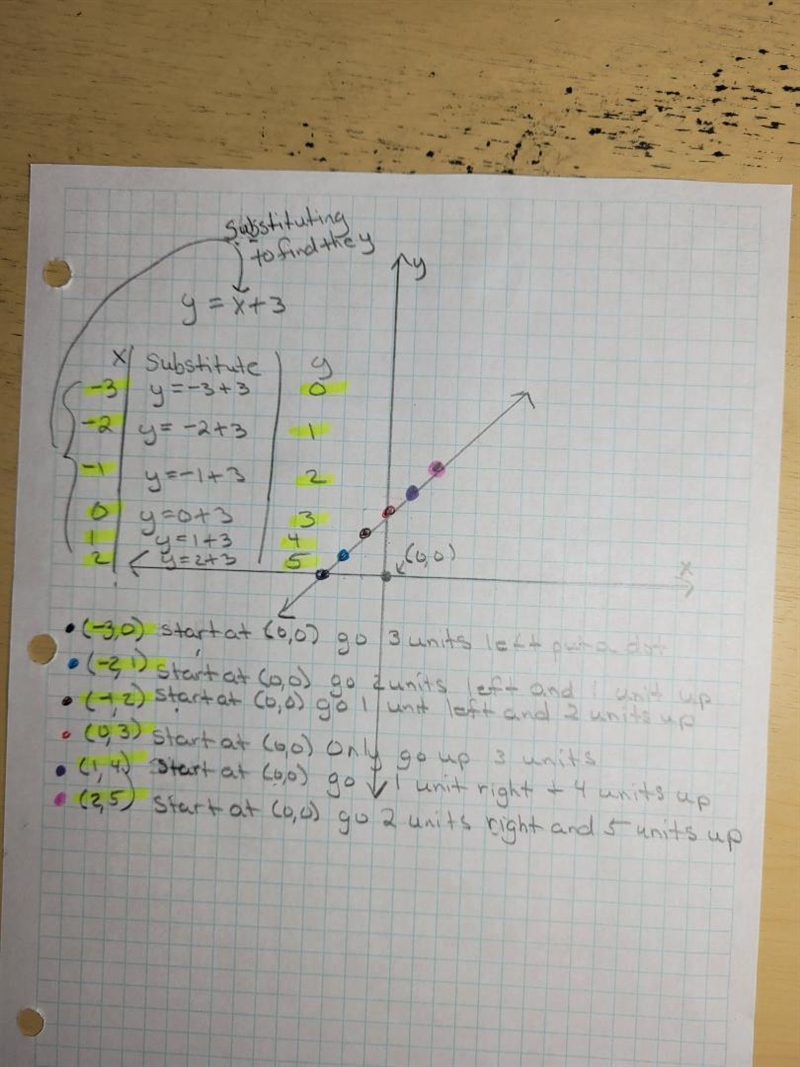 Substituting
to find the y
y = x+3
y
x Substitute y
-3 y=-3+3 0
-2 y= -2+3 1
-1 y=-1+3 2
0 y=0+3 3
1 y=1+3 4
2 y=2+3 5
(0,0)
x
(-3,0) start at (0,0) go 3 units left put a dot
(-2,1) start at (0,0) go 2 units left and 1 unit up
(-1,2) start at (0,0) go 1 unit left and 2 units up
(0,3) start at (0,0) only go up 3 units
(1,4) Start at (0,0) go 1 unit right + 4 units up
(2,5) Start at (0,0) go 2 units right and 5 units up